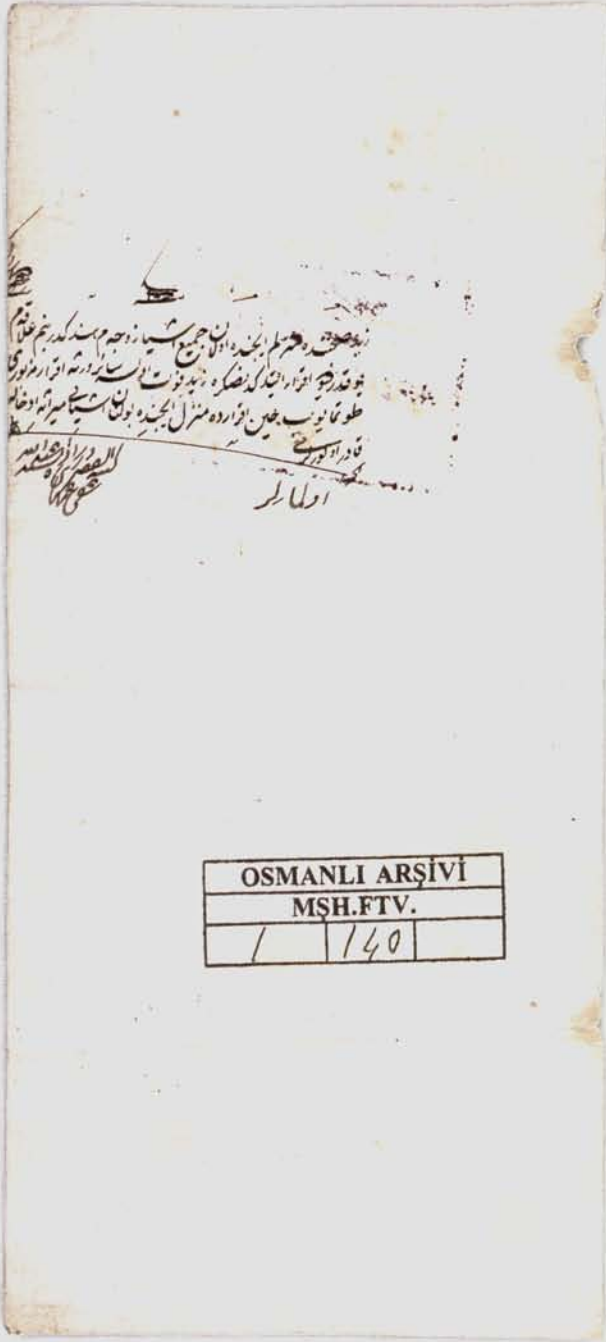 زيد صحتنده منزلم ايچنده اولان جميع اشيا زوجه م هندكدر بنم علاقه م
يوقدر ديو اقرار ايتدكدنصكره زيد فوت اولسه سائر ورثه اقرار مزبورى
طوتمايوب حين اقرارده منزل ايچنده بولنان اشيايى ميراثه ادخاله
قادر اولورلر مى
اولمازلر
كتبه الفقير
عفى عنه
OSMANLI ARŞİVİ
MŞH.FTV.
1 140